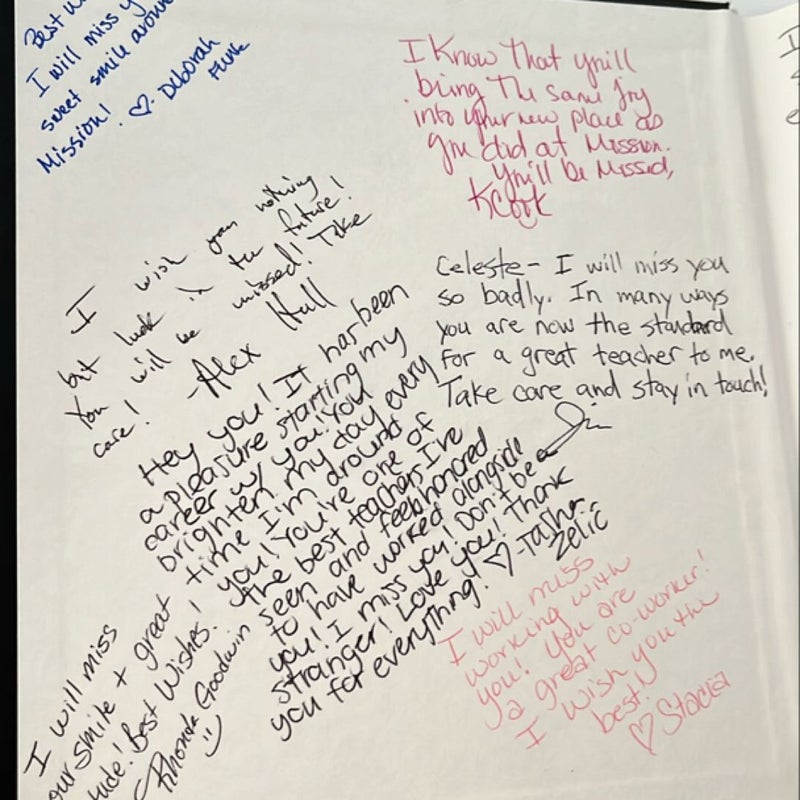 Best
I will miss
sweet smile around
Mission! ♡- Deborah
Funk
I Know That you'll
bring The same Joy
into your new place as
you did at Mission.
You'll be Missed,
KCook
I wish you nothing
but luck in the future!
You will be missed! Take
care! -Alex Hull
Celeste- I will miss you
so badly. In many ways
you are now the standard
for a great teacher to me.
Take care and stay in touch!
Hey you! It has been
a pleasure starting my
career w/ you! You
brighten my day every
time I'm around
you! You're one of
the best teachers I've
seen and feel honored
to have worked alongside
you! I miss you! Don't be a
stranger! Love you! Thank
you for everything! ♡-Tasha
Zelic
I will miss
your smile + great
Best Wishes!
Rhonda Goodwin
I will miss
working with
you! You are
a great co-worker!
I wish you the
best!
♡ Stacia
I